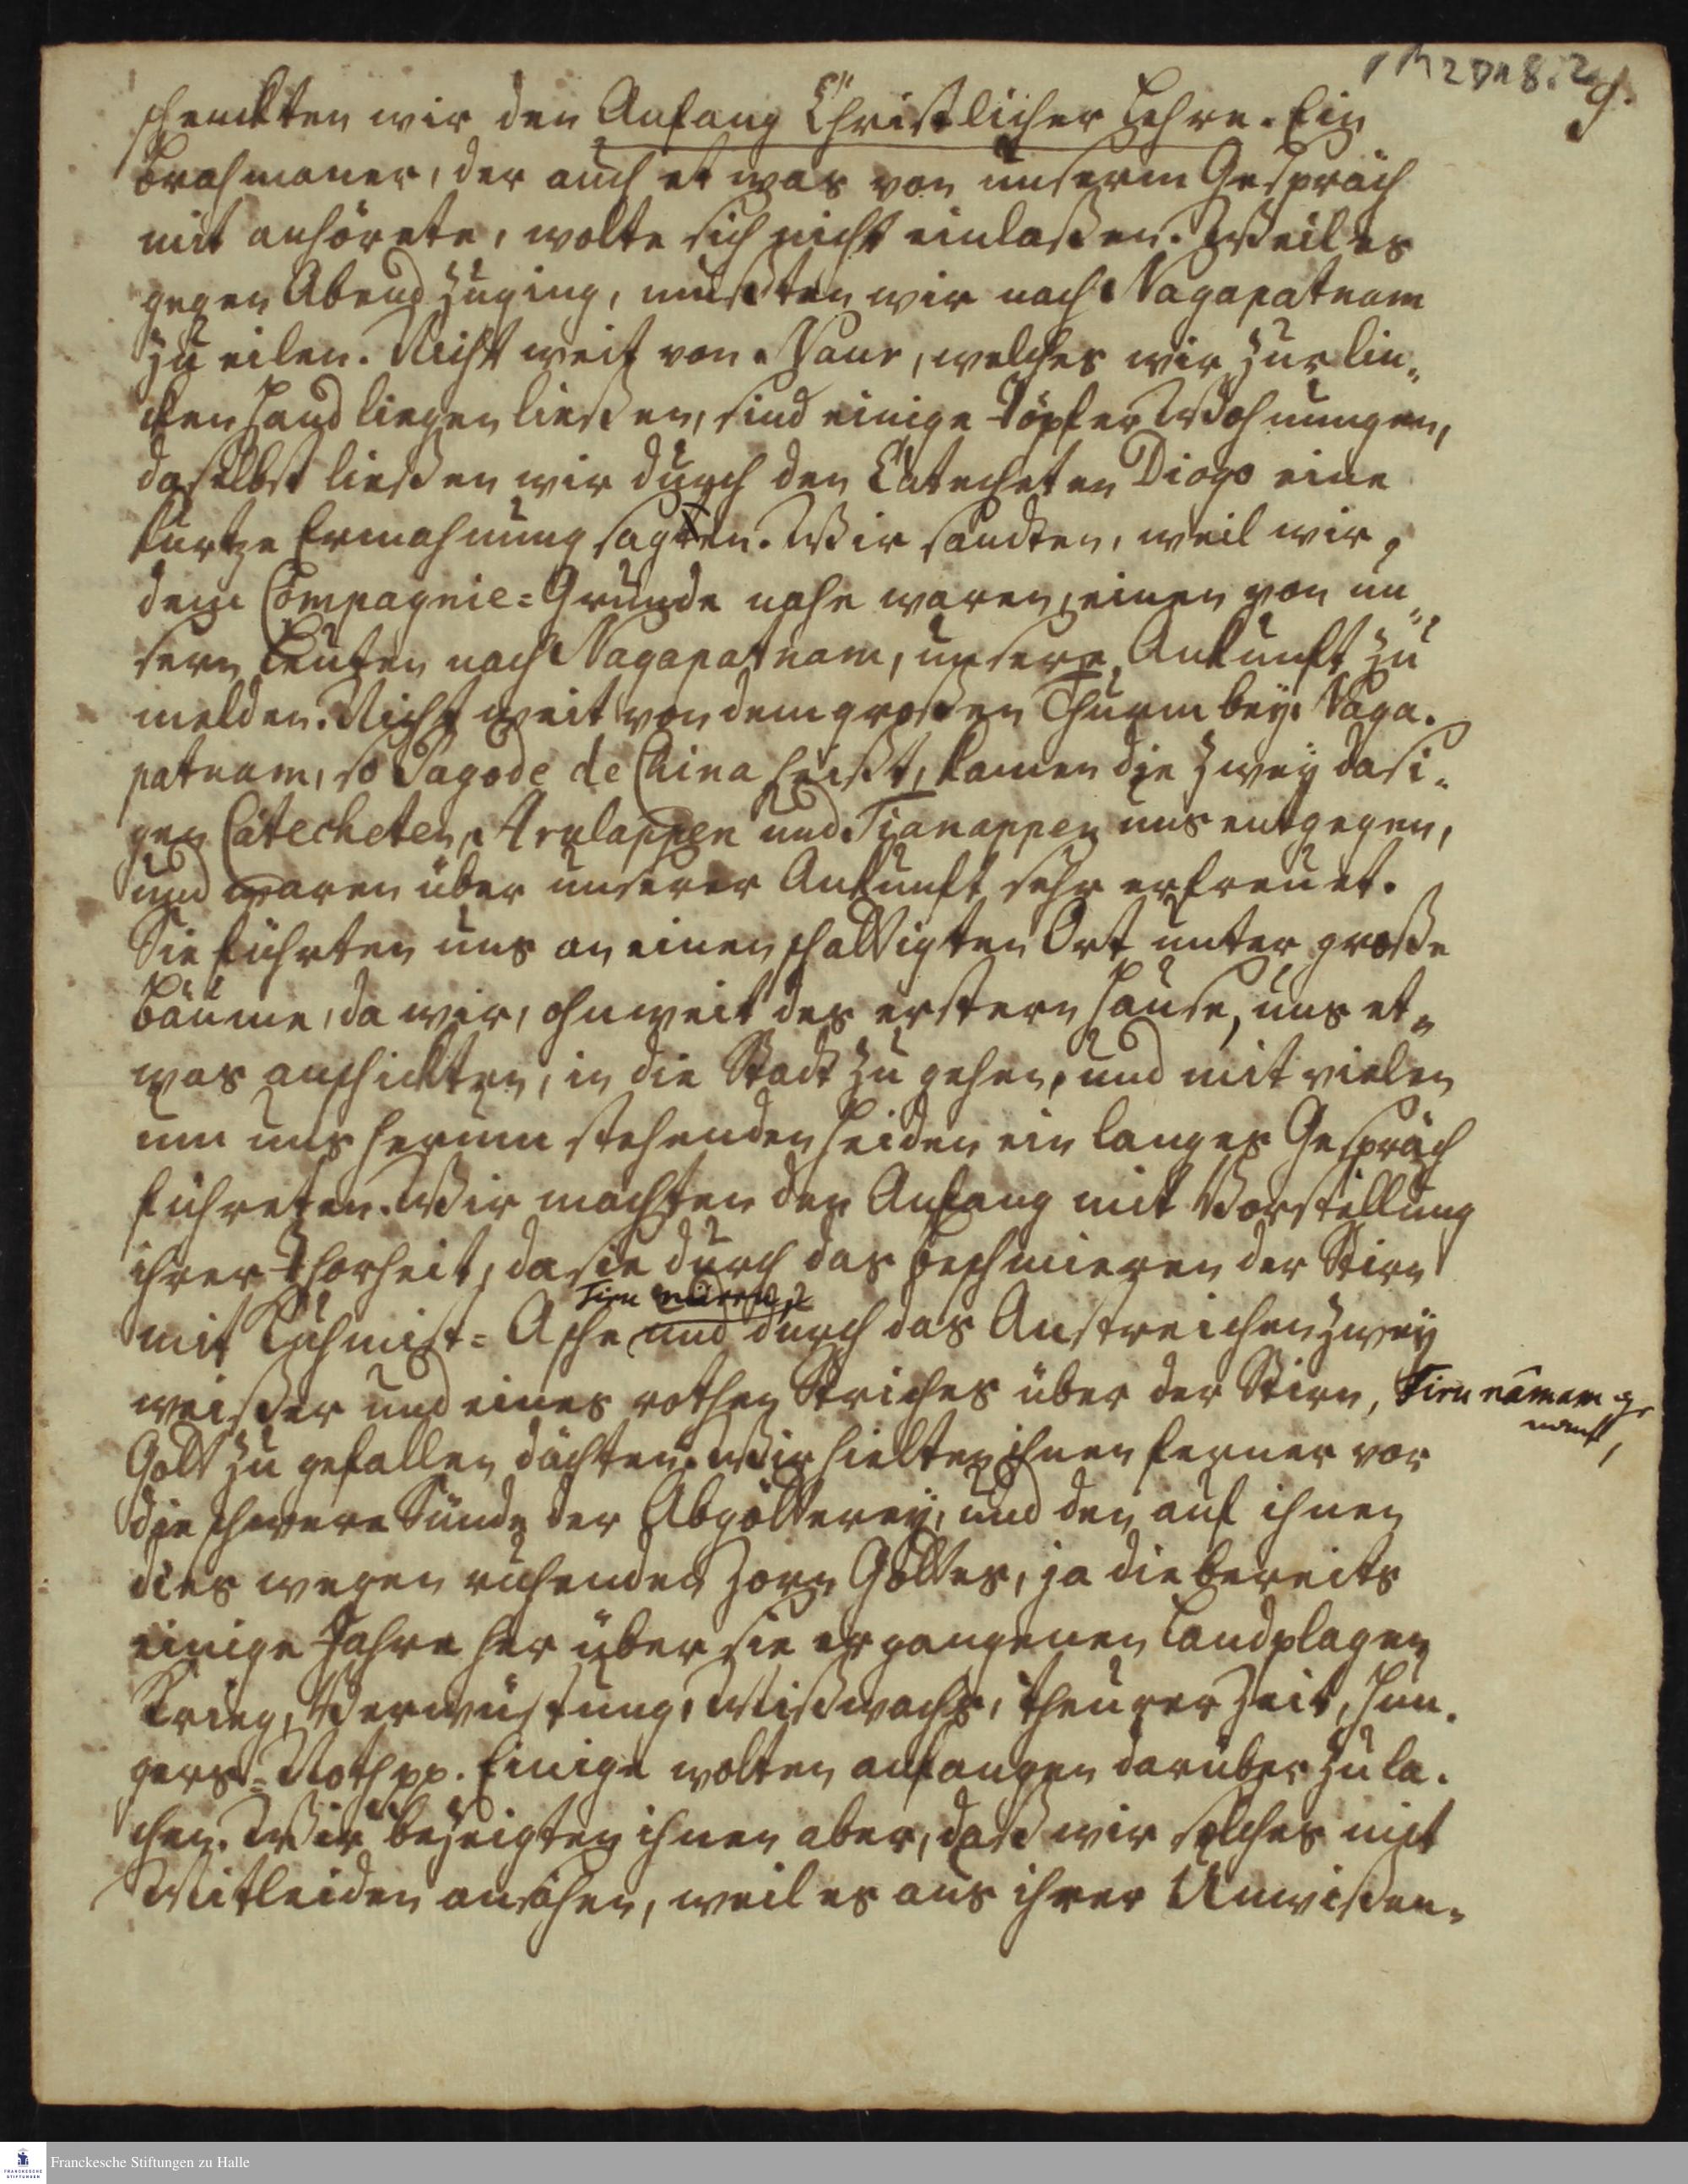 1 M 2 D 18 : 2
9.
schenckten wir den Anfang Christlicher Lehre. Ein
Brahmaner, der auch etwas von unserm Gespräch
mit anhörete, wolte sich nicht einlaßen. Weil es
gegen Abend zuging, mußten wir nach Nagapatnam
zu eilen. Nicht weit von Naur, welches wir zur lin-
cken Hand liegen ließen, sind einige Töpfer Wohnungen,
daselbst ließen wir durch den Catecheten Diogo eine
kurtze Ermahnung sagen. Wir sandten, weil wir
dem Compagnie=Grunde nahe waren, einen von un-
sern Leuten nach Nagapatnam, unsere Ankunft zu
melden. Nicht weit von dem großen Thurm bey Naga-
patnam, so Pagode de China heißt, kamen die zwey dasi-
gen Catecheten, Arulappen und Tianappen uns entgegen,
und waren über unserer Ankunft sehr erfreuet.
Sie führten uns an einen schattigten Ort unter große
Bäume, da wir, ohnweit des erstern Hause, uns et-
was anschickten, in die Stadt zu gehen, und mit vielen
um uns herum stehenden Heiden ein langes Gespräch
führeten. Wir machten den Anfang mit Vorstellung
ihrer Thorheit, da sie durch das Beschmieren der Stirn
Tiru
mit Kühmist=Asche und durch das Anstreichen zwey
weißer und eines rothen Striches über der Stirn, Tirunámam ge
nant,
Gott zu gefallen dächten. Wir hielten ihnen ferner vor
die schwere Sünde der Abgötterey, und den auf ihnen
dies wegen ruhenden Zorn Gottes, ja die bereits
einige Jahre her über sie ergangenen Landplagen
Krieg, Verwüstung, Mißwachs, theurer Zeit, Hun-
gers=Noth pp. Einige wolten anfangen darüber zu la-
chen. Wir bezeigten ihnen aber, daß wir solches mit
Mitleiden ansähen, weil es aus ihrer Unwißen-
Franckesche Stiftungen zu Halle
FRANCKESCHE
STIFTUNGEN